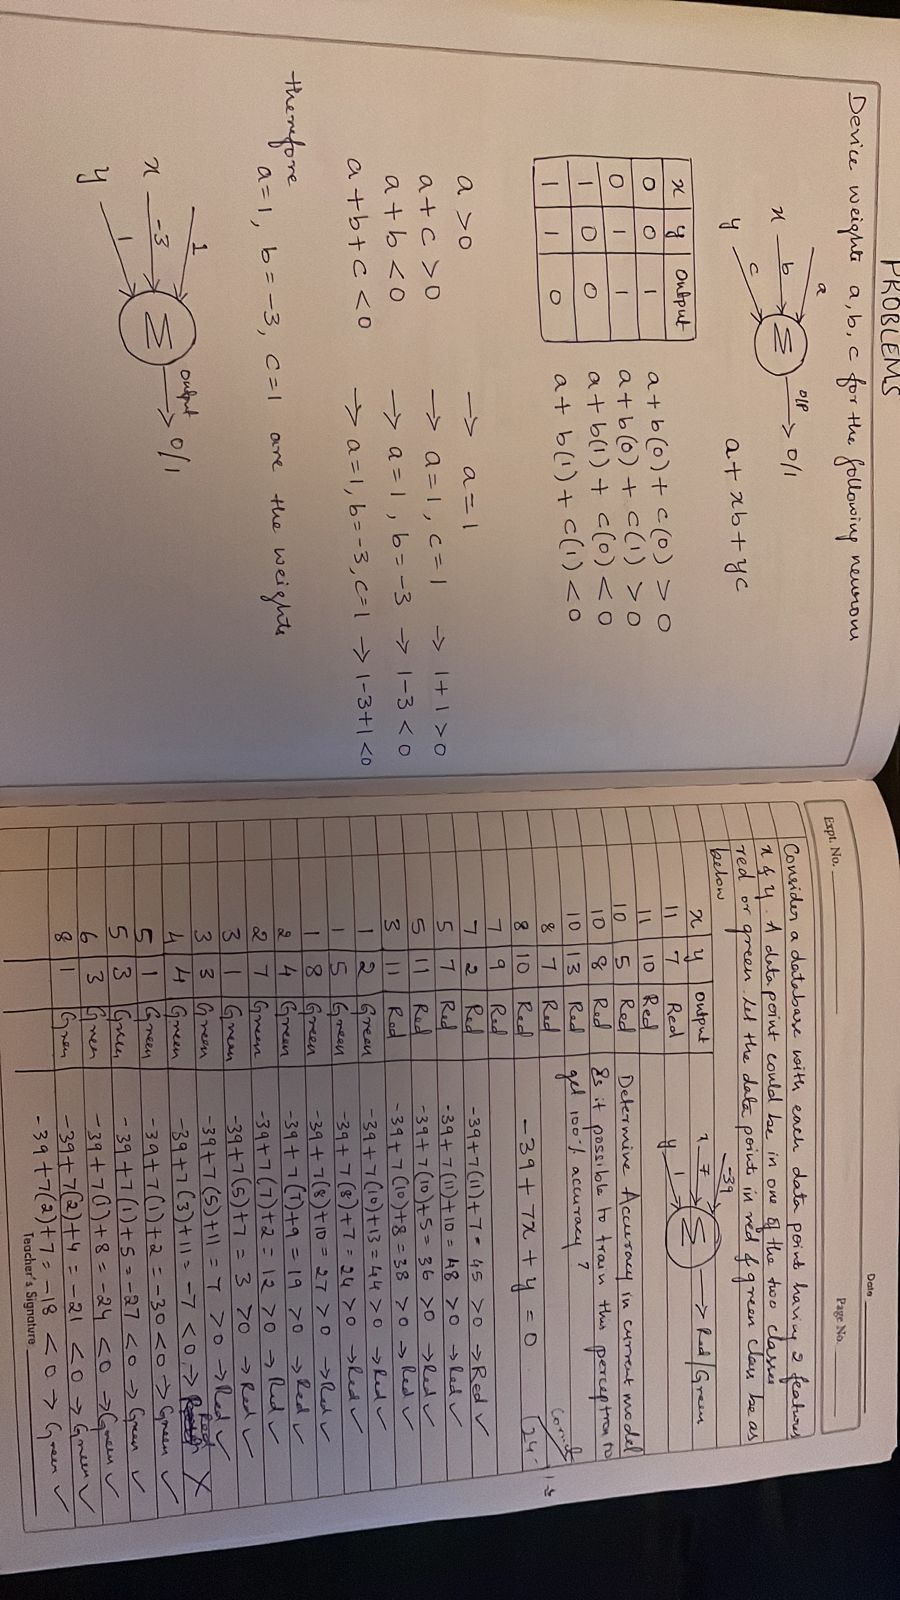 PROBLEMS
Device weights a, b, c for the following neurons
a
x b Σ O/P 0/1
y c
a + xb + yc
x y Output
0 0 1
0 1 1
1 0 0
1 1 0
a + b(0) + c(0) > 0
a + b(0) + c(1) > 0
a + b(1) + c(0) < 0
a + b(1) + c(1) < 0
a > 0 → a = 1
a + c > 0 → a = 1, c = 1 → 1 + 1 > 0
a + b < 0 → a = 1, b = -3 → 1 - 3 < 0
a + b + c < 0 → a = 1, b = -3, c = 1 → 1 - 3 + 1 < 0
therefore
a = 1, b = -3, c = 1 are the weights
1
x -3 Σ output 0/1
y 1
Date
Expt. No. Page No.
Consider a database with each data point having 2 features
x & y. A data point could be in one of the two classes
red or green. Let the data point in red & green class be as
below
-39
x 7 Σ Red/Green
y 1
x y Output
11 7 Red
11 10 Red
10 5 Red
10 8 Red
10 13 Red
8 7 Red
8 10 Red
7 9 Red
7 2 Red
5 7 Red
5 11 Red
3 11 Red
1 2 Green
1 5 Green
1 8 Green
2 4 Green
2 7 Green
3 1 Green
3 3 Green
4 4 Green
5 1 Green
5 3 Green
6 3 Green
8 1 Green
Determine Accuracy in current model
Is it possible to train this perceptron to
get 100% accuracy ?
-39 + 7x + y = 0
24
-39 + 7(11) + 7 = 45 > 0 → Red ✓
-39 + 7(11) + 10 = 48 > 0 → Red ✓
-39 + 7(10) + 5 = 36 > 0 → Red ✓
-39 + 7(10) + 8 = 38 > 0 → Red ✓
-39 + 7(10) + 13 = 44 > 0 → Red ✓
-39 + 7(8) + 7 = 24 > 0 → Red ✓
-39 + 7(8) + 10 = 27 > 0 → Red ✓
-39 + 7(7) + 9 = 19 > 0 → Red ✓
-39 + 7(7) + 2 = 12 > 0 → Red ✓
-39 + 7(5) + 7 = 3 > 0 → Red ✓
-39 + 7(5) + 11 = 7 > 0 → Red ✓
-39 + 7(3) + 11 = -7 < 0 → Red X
-39 + 7(1) + 2 = -30 < 0 → Green ✓
-39 + 7(1) + 5 = -27 < 0 → Green ✓
-39 + 7(1) + 8 = -24 < 0 → Green ✓
-39 + 7(2) + 4 = -21 < 0 → Green ✓
-39 + 7(2) + 7 = -18 < 0 → Green ✓
Teacher's Signature